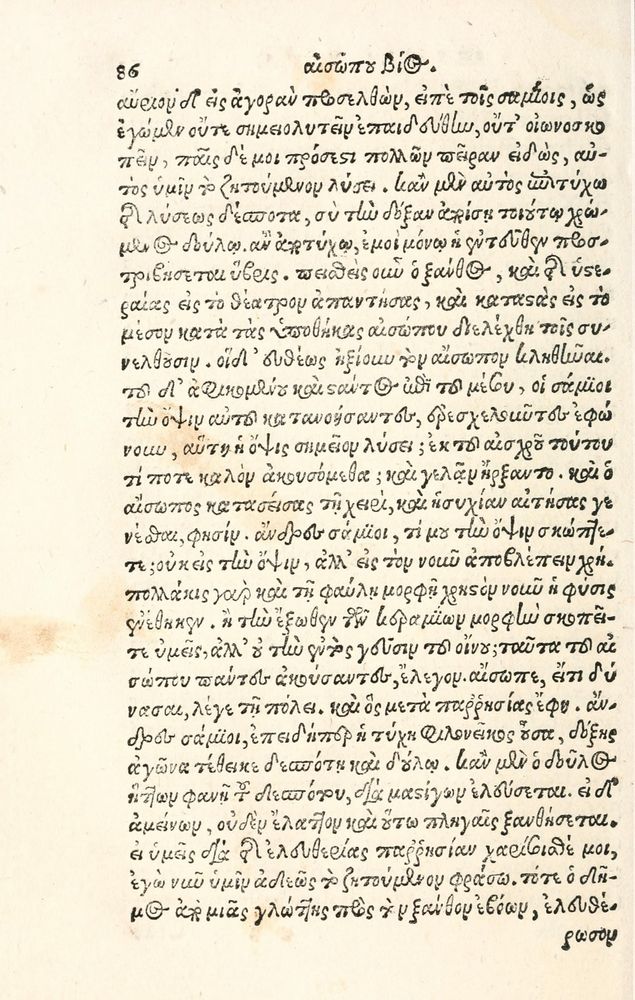 86 αἰσώπου βίος.
αὔριον δ' εἰς ἀγορὰν προσελθὼν, εἰπὲ τοῖς σαμίοις, ὡς
ἐγὼ μὲν οὔτε σημειολυτεῖν ἐπαιδεύθην, οὔτ' οἰωνοσκο
πεῖν, παῖς δέ μοι πρόσεστι πολλῶν πεῖραν εἰδὼς, αὐ-
τὸς ὑμῖν τὸ ζητούμενον λύσει. κἂν μὲν αὐτὸς ἐπιτύχω
τῆς λύσεως δέσποτα, σὺ τὴν δόξαν ἀποίσῃ τοιούτῳ χρώ-
μενος δούλῳ. ἂν ἀποτύχω, ἐμοὶ μόνῳ ἡ ἐντεῦθεν προσ-
τριβήσεται ὕβρις. πεισθεὶς οὖν ὁ ξάνθος, καὶ τῆς ὑστε-
ραίας εἰς τὸ θέατρον ἀπαντήσας, καὶ καταστὰς εἰς τὸ
μέσον κατὰ τὰς ὑποθήκας αἰσώπου διελέχθη τοῖς συ-
νελθοῦσιν. οἱ δ' εὐθέως ἠξίουν τὸν αἴσωπον κληθῆναι.
τοῦ δ' ἀφικομένου καὶ στάντος ἐπὶ τοῦ μέσου, οἱ σάμιοι
τὴν ὄψιν αὐτοῦ κατανοήσαντες, ἐρεσχελοῦντες ἐφώ
νουν, αὕτη ἡ ὄψις σημεῖον λύσει; ἐκ τοῦ αἰσχροῦ τούτου
τί ποτε καλὸν ἀκουσόμεθα; καὶ γελᾶν ἤρξαντο. καὶ ὁ
αἴσωπος κατασείσας τῇ χειρὶ, καὶ ἡσυχίαν αἰτήσας γε
νέσθαι, φησίν. ἄνδρες σάμιοι, τί μου τὴν ὄψιν σκώπτε-
τε; οὐκ εἰς τὴν ὄψιν, ἀλλ' εἰς τὸν νοῦν ἀποβλέπειν χρή.
πολλάκις γὰρ καὶ τῇ φαύλῃ μορφῇ χρηστὸν νοῦν ἡ φύσις
ἐνέθηκεν. ἢ τὴν ἔξωθεν τῶν κεραμίων μορφὴν σκοπεῖ-
τε ὑμεῖς, ἀλλ' οὐ τὴν ἐντὸς γεῦσιν τοῦ οἴνου; ταῦτα τοῦ αἰ
σώπου πάντες ἀκούσαντες, ἔλεγον. αἴσωπε, εἴ τι δύ
νασαι, λέγε τῇ πόλει. καὶ ὃς μετὰ παρρησίας ἔφη. ἄν-
δρες σάμιοι, ἐπειδήπερ ἡ τύχη φιλόνεικος οὖσα, δόξης
ἀγῶνα τέθεικε δεσπότῃ καὶ δούλῳ. κἂν μὲν ὁ δοῦλος
ἥττων φανῇ τοῦ δεσπότου, διὰ μαστίγων ἐλεύσεται. εἰ δ'
ἀμείνων, οὐδὲν ἔλαττον καὶ οὕτω πληγαῖς ξανθήσεται.
εἰ ὑμεῖς διὰ τῆς ἐλευθερίας παρρησίαν χαρίσεσθέ μοι,
ἐγὼ νῦν ὑμῖν ἀδεῶς τὸ ζητούμενον φράσω. τότε ὁ δῆ-
μος ἀπὸ μιᾶς γλώττης πρὸς τὸν ξάνθον ἐβόων, ἐλευθέ-
ρωσον